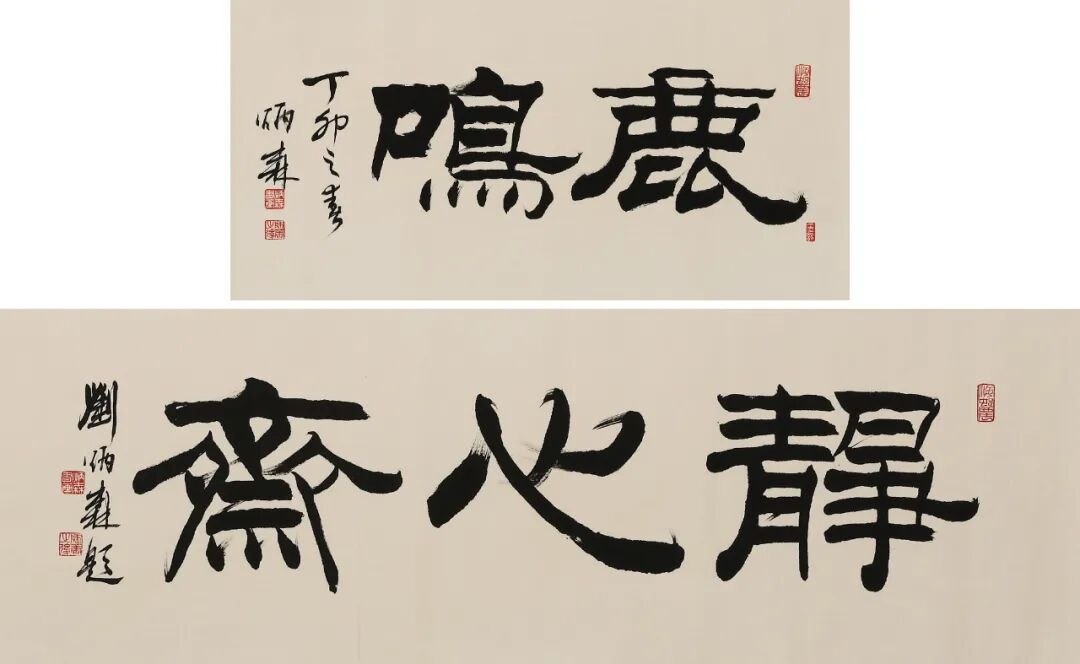 鹿鳴
丁卯之春
炳森
靜心齋
劉炳森題